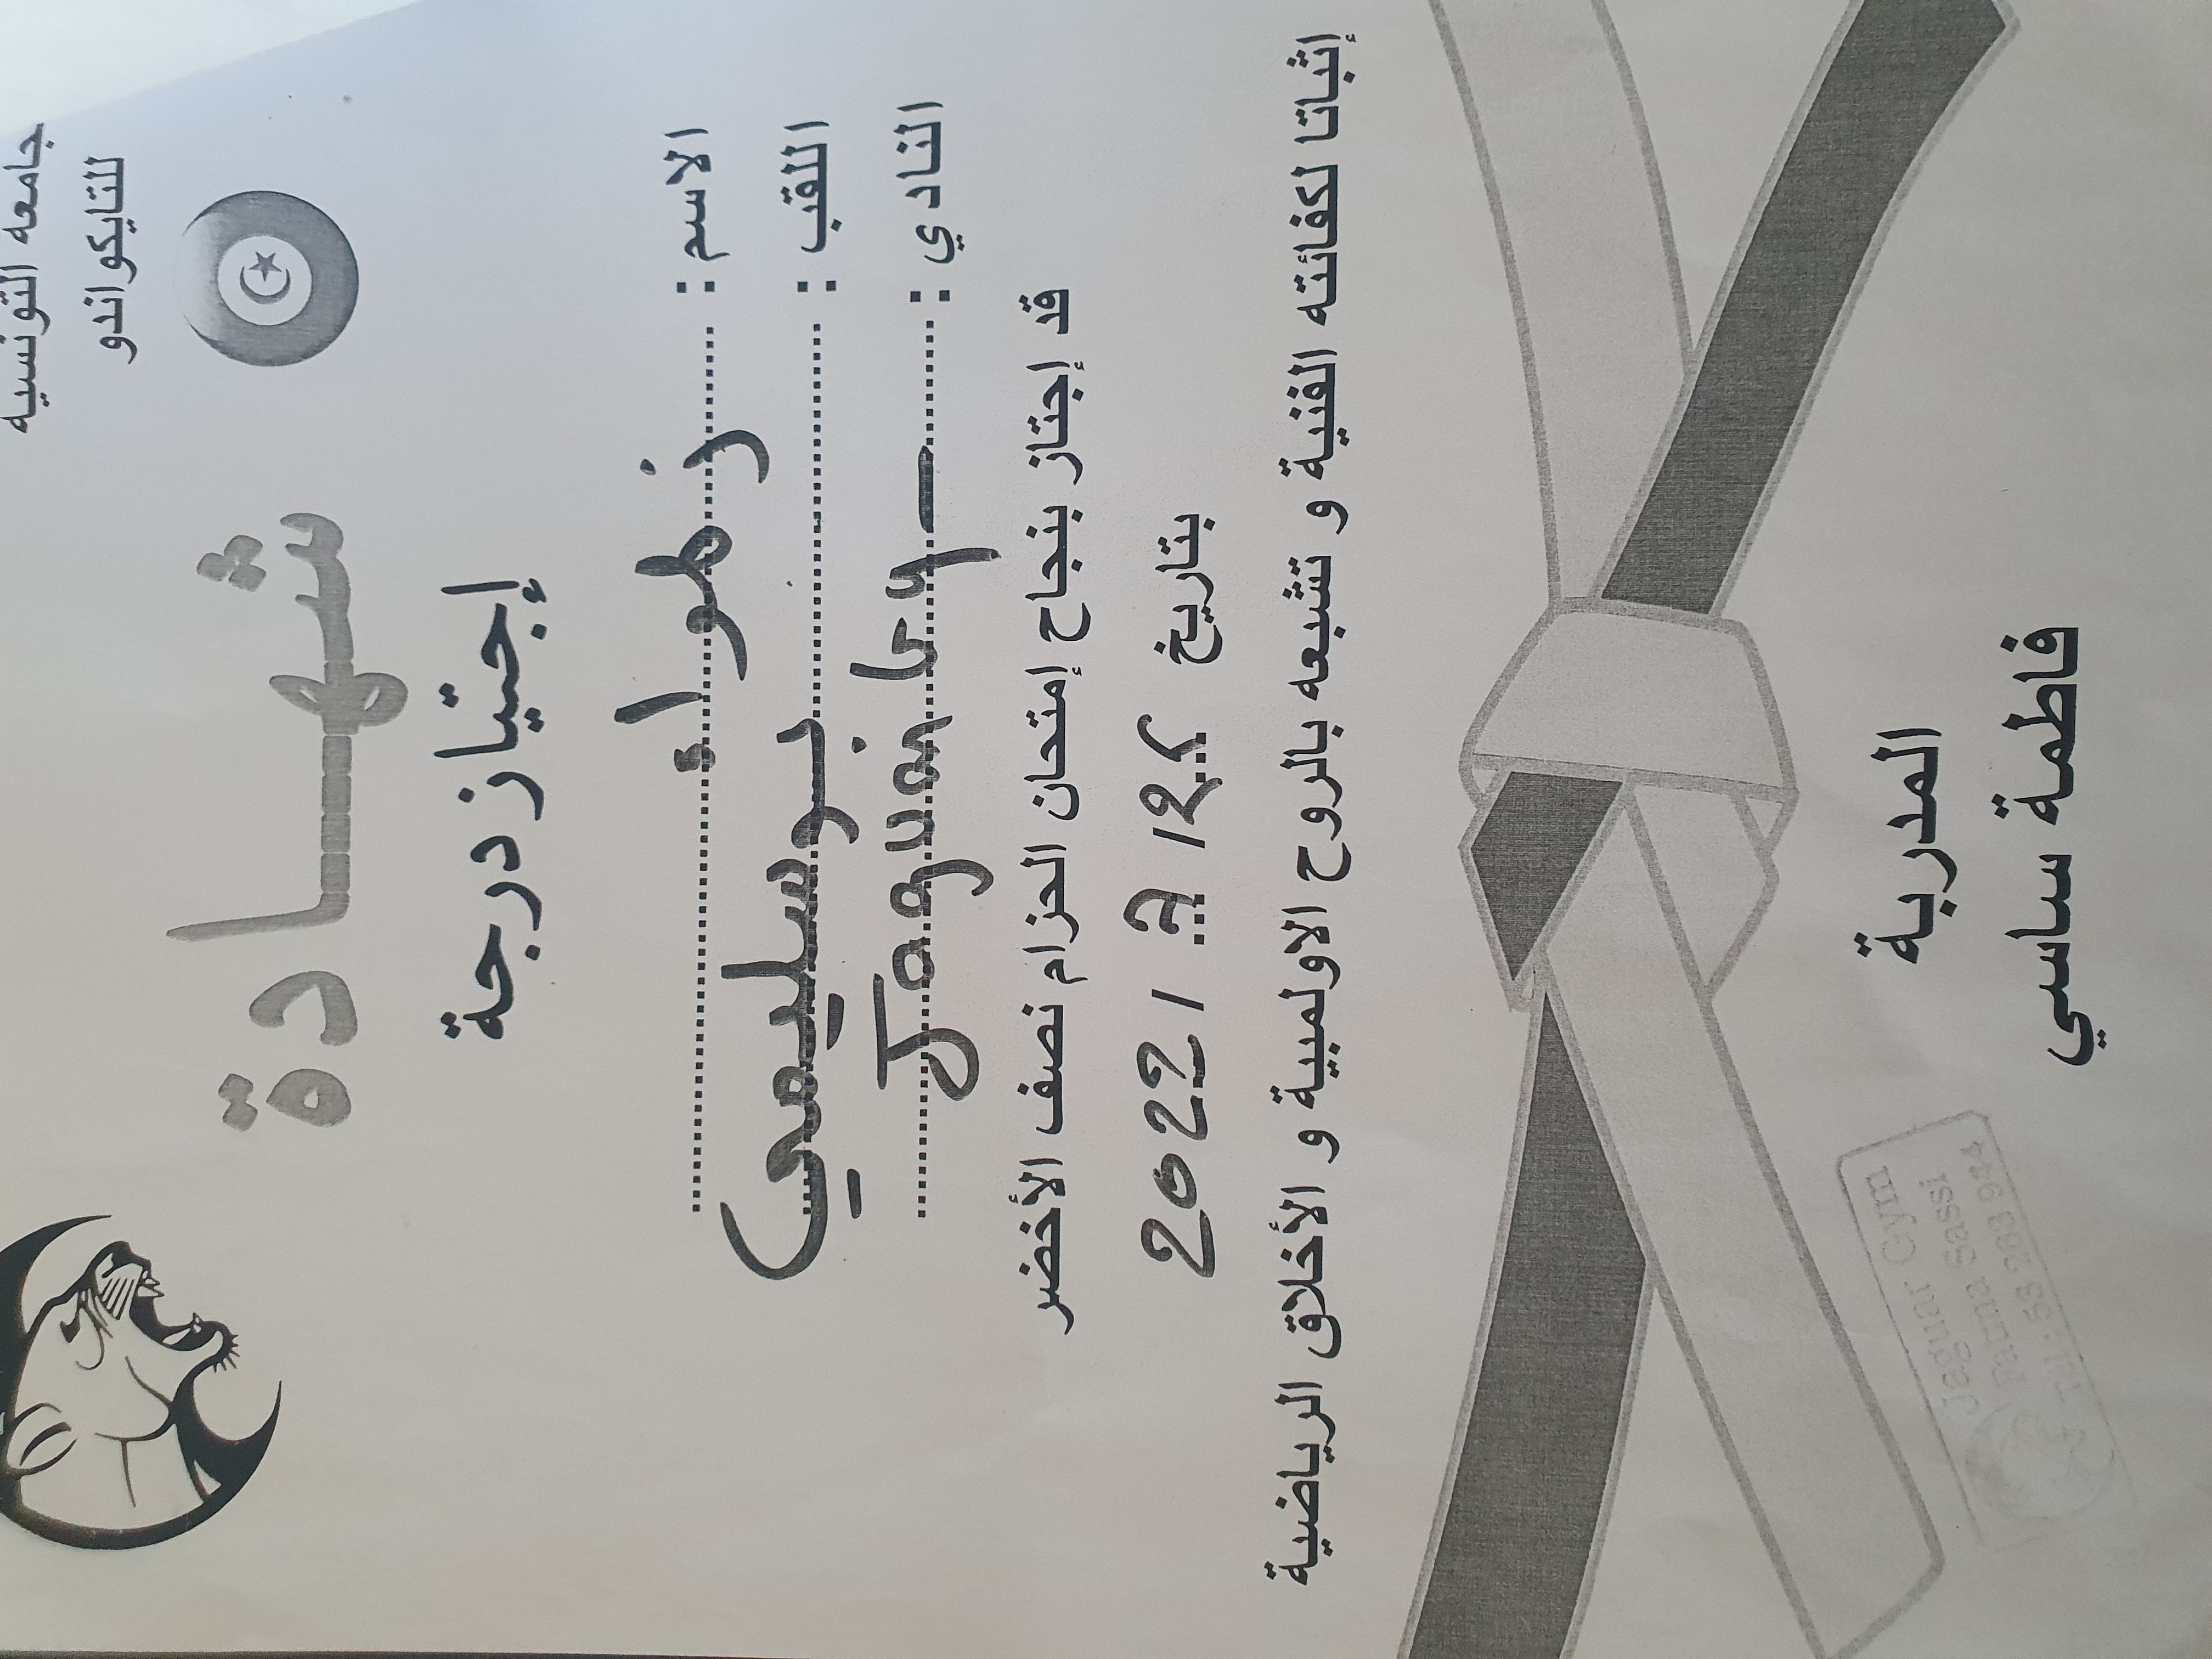 جامعه التونسيه
للتايكواندو
شهادة
إجتياز درجة
الاسم :
اللقب : بوسليمي
النادي :
قد إجتاز بنجاح إمتحان الحزام نصف الأخضر
بتاريخ 2022
إثباتا لكفائته الفنية و تشبعه بالروح الاولمبية و الأخلاق الرياضية
المدربة
فاطمة ساسي
Jaguar Gym
Fatma Sassi
Tel : 53 263 944